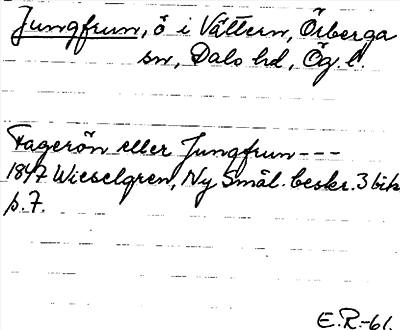 Jungfrun, ö i Vättern, Örberga
sn, Dals hd, Ög. l.
Fagerön eller Jungfrun ---
1847 Wieselgren, Ny Smål. beskr. 3 bih
p. 7.
E.R.-61.